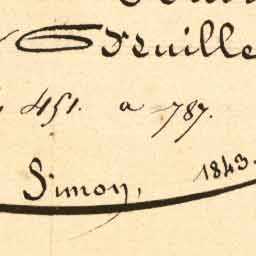 Greuille
451. a 787.
Simon, 1843.